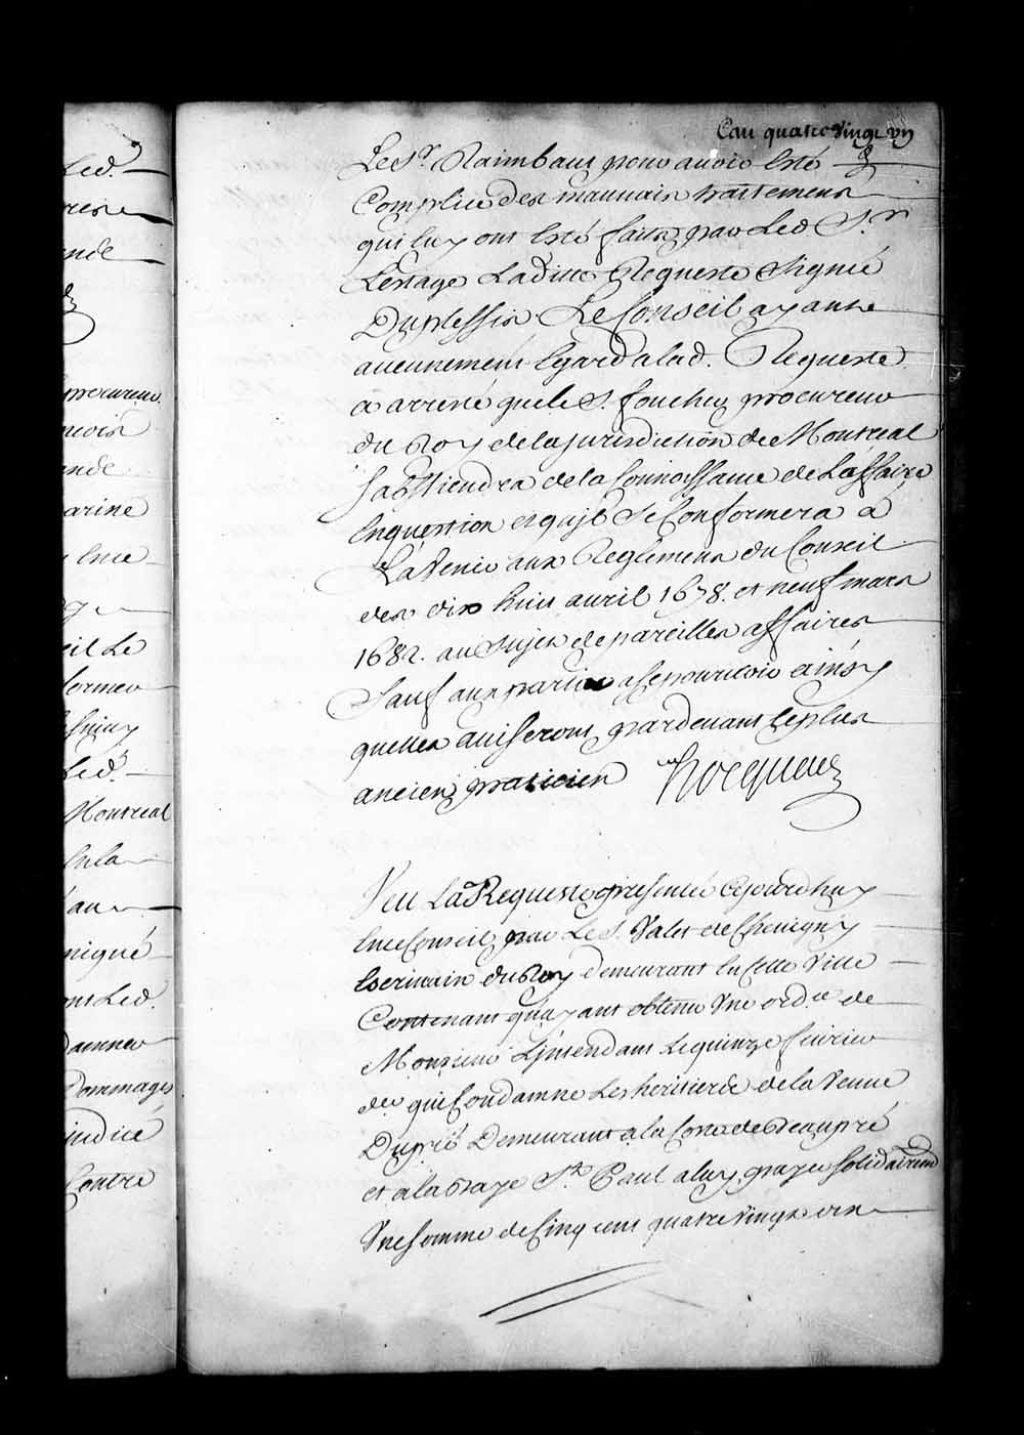 Led.
nde
procureur
nde
arine
ence
eil Le
former
Led.
Montreal
en la
nigué
ont Led.
Dommages
judice
Contre
Cau quatre vingt un
Le Sr. Raimbaut pour auoir Esté
Complice des mauuais traittemens
qui luy ont Esté faits par Led Sr.
Lestage Laditte Requeste Signée
Duplessis. Le Conseil ayant
aucunement Egard alad. Requeste
a arresté que le S. foucher procureur
du Roy de la jurisdiction de Montreal
s'abstiendra de la Connoissance de L'affaire
En question et qu'il Se Conformera à
L'avenir aux Reglemens du Conseil
des dix huit auril 1678. et neuf mars
1682. au Sujet de pareilles affaires
Sauf aux parties a se pouruoir ainsy
quelles auiseront pardeuant le plus
ancien praticien Hocquart
Veu La Requeste presentée Cejourdhuy
En ce Conseil par Le S. Valet de Cheuigny
Escriuain du Roy demeurant En Cette Ville
Contenant qu'ayant obtenu Vne ordce de
Monsieur L'jntendant Le quinze feurier
der qui Condamne Les heritiers de la Veuue
Dupré Demeurant a la Coste de Beaupré
et a la Baye St. Paul a luy payer Solidairemt
Vne Somme de Cinq cent quatre Vingt dix